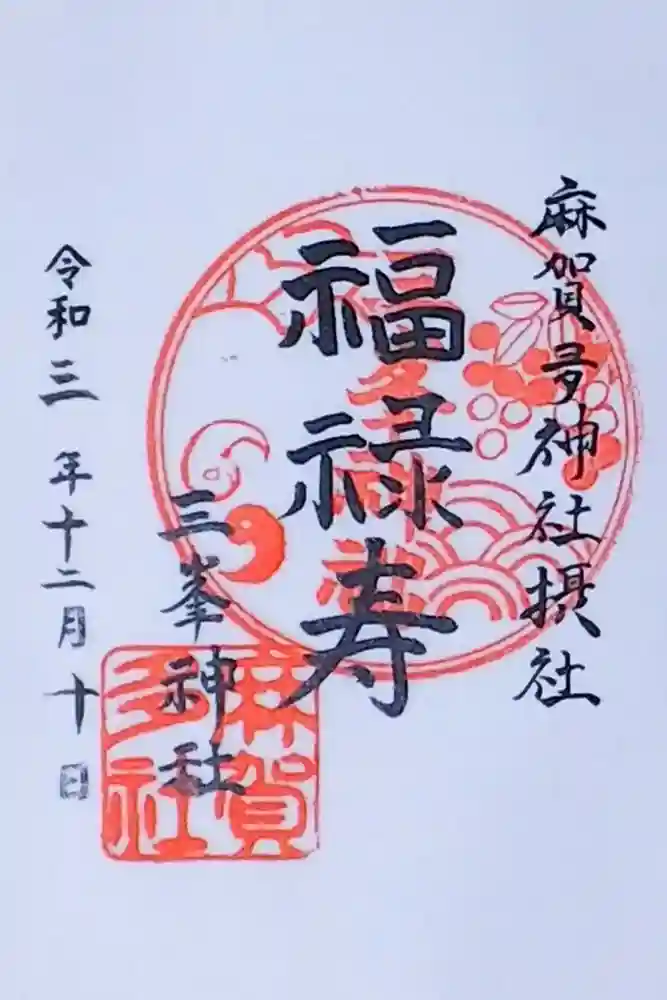 麻賀多神社摂社
福禄寿
三峯神社
令和三年十二月十日
麻賀
多社